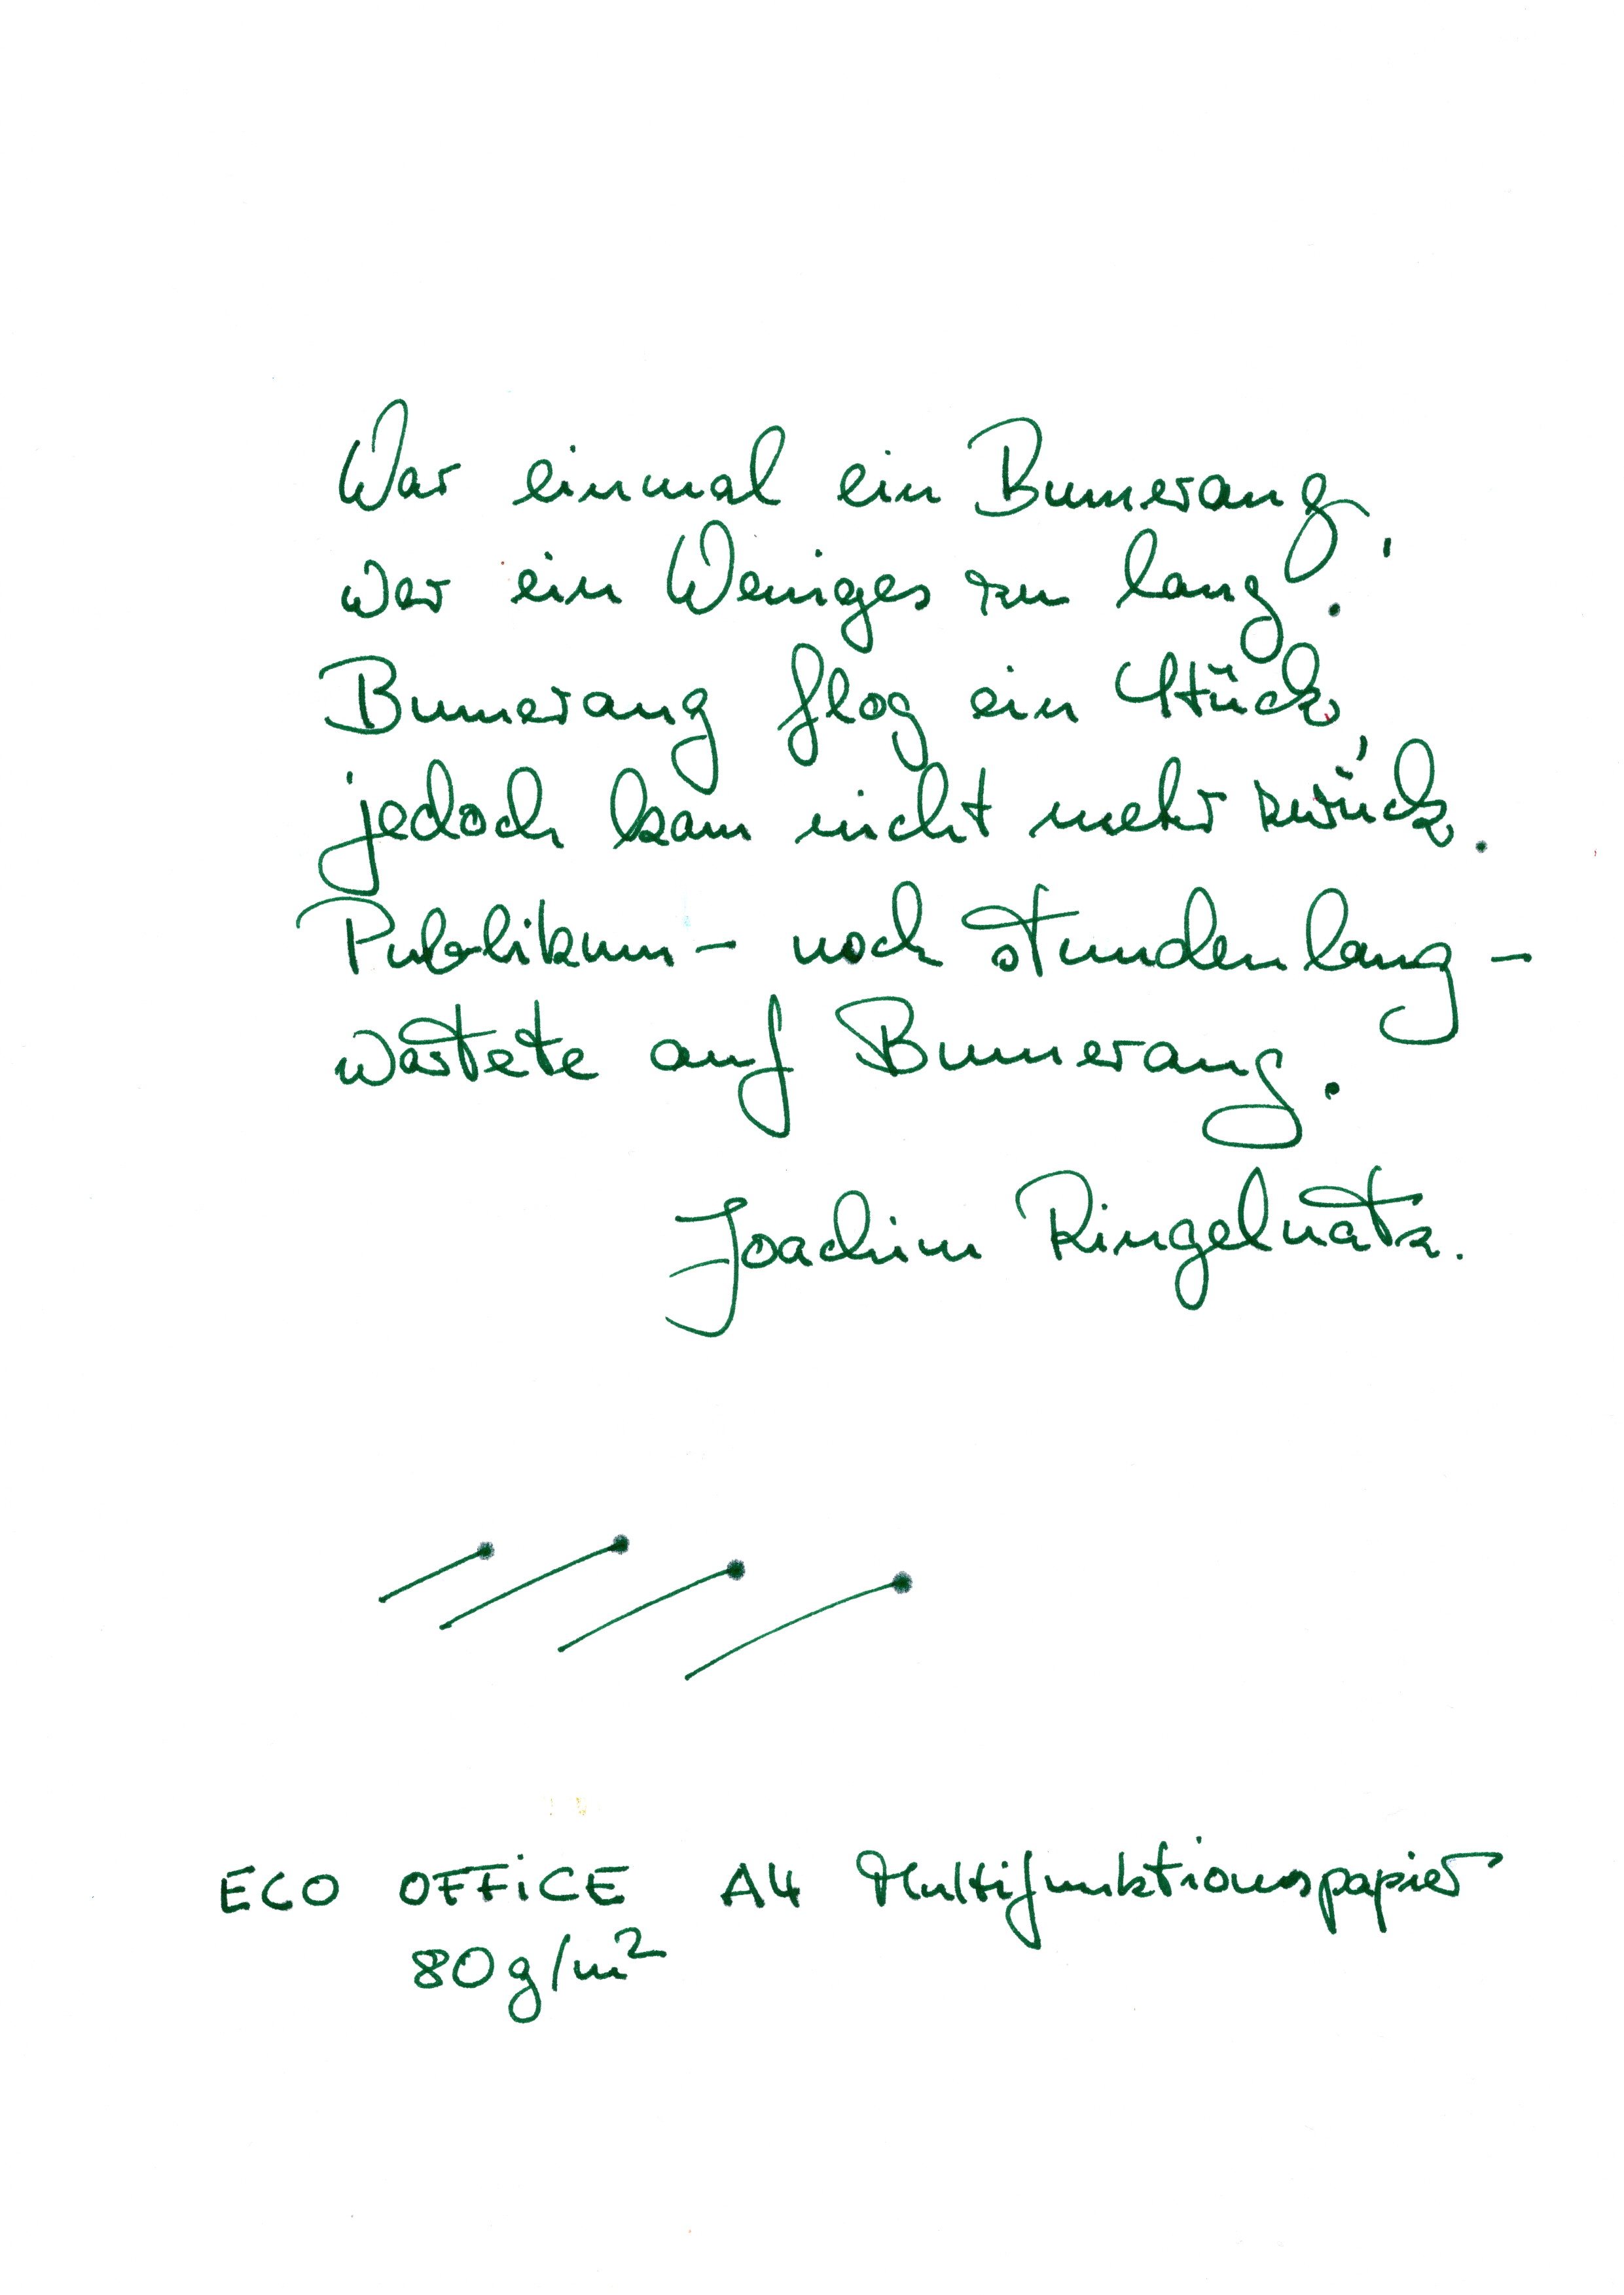 War einmal ein Bumerang,
war ein Weniges zu lang.
Bumerang flog ein Stück,
jedoch kam nicht mehr zurück.
Publikum – noch stundenlang –
wartete auf Bumerang.
Joachim Ringelnatz.
ECO OFFiCE A4 Multifunktionspapier
80g/m²